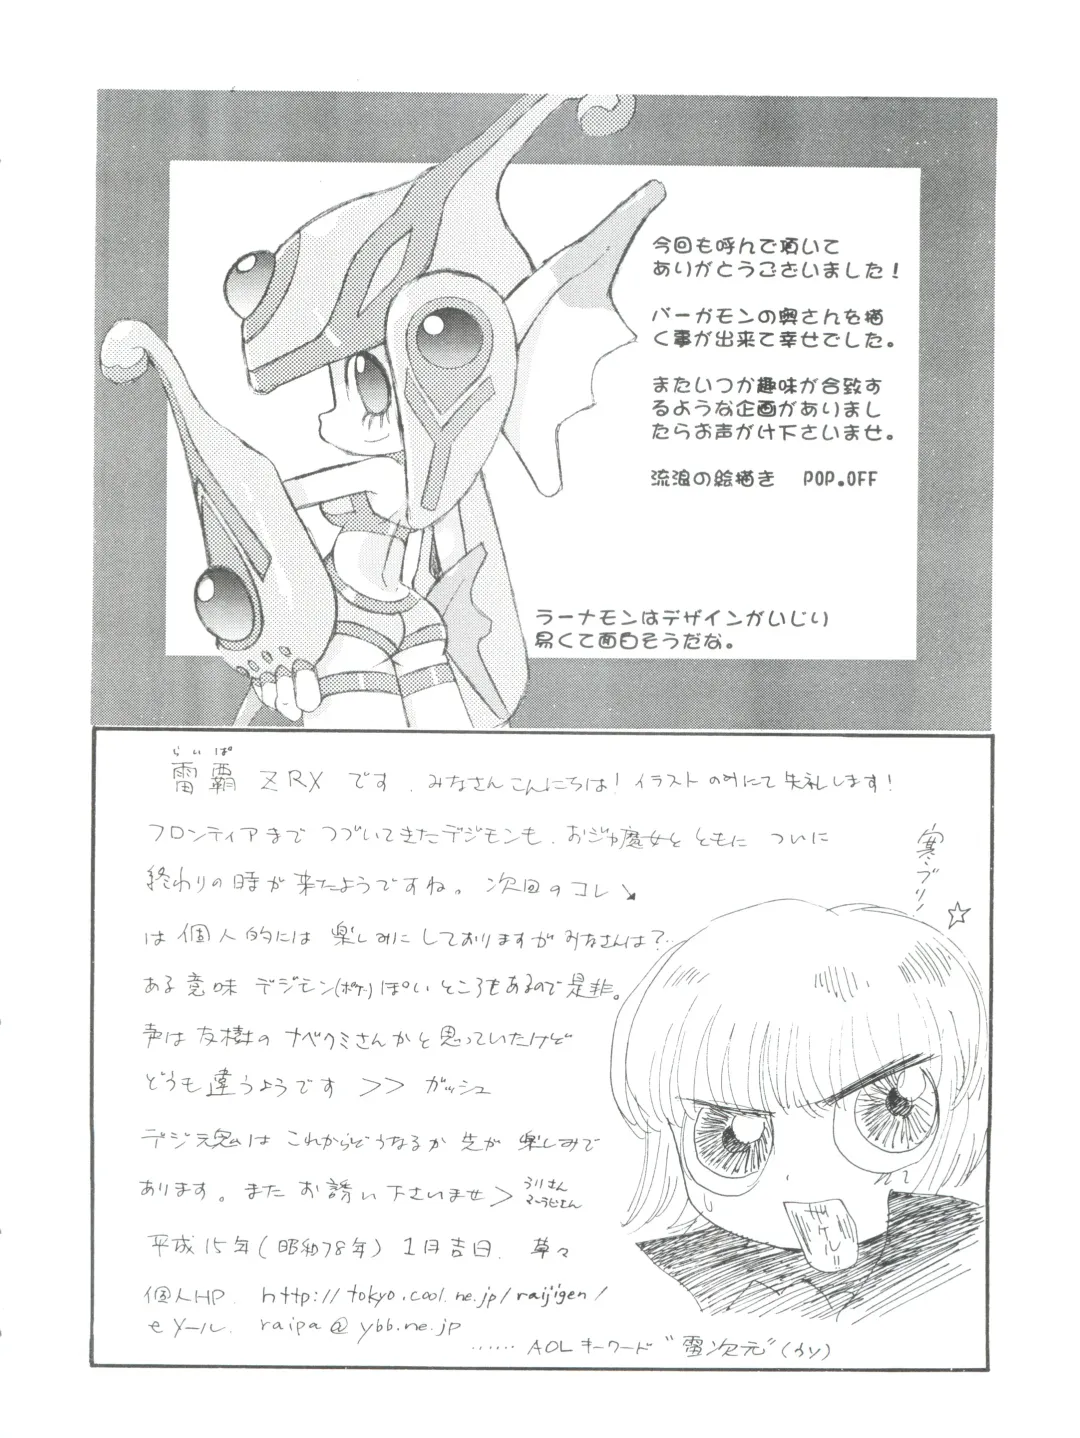 今回も呼んで頂いて
ありがとうございました!
バーガモンの奥さんを描
く事が出来て幸せでした。
またいつか趣味が合致す
るような企画がありまし
たらお声がけ下さいませ。
流浪の絵描き POP.OFF
ラーナモンはデザインがいじり
易くて面白そうだな。
らいぱ
雷覇 ZRX です. みなさんこんにちは! イラストのみにて失礼します!
フロンティアまで つづいてきたデジモンも、おジャ魔女と ともに ついに
終わりの時が 来たようですね。 次回のコレ↘
は 個人的には 楽しみに しておりますが みなさんは?…
ある意味 デジモン(ポケ)ぽい ところもあるので 是非。
声は 友樹の ナベクミさんかと 思っていたけど
どうも違うようです >> ガッシュ
デジ魂は これからどうなるか 先が 楽しみで
あります。 また お誘い 下さいませ>
平成15年(昭和78年) 1月吉日. 草々
個人HP. http://tokyo.cool.ne.jp/raijigen/
eメール. raipa@ybb.ne.jp
……AOLキーワード"雷次元"(ウソ)
☆